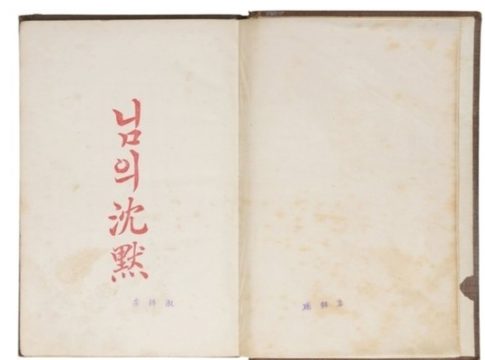 님의
沈
默